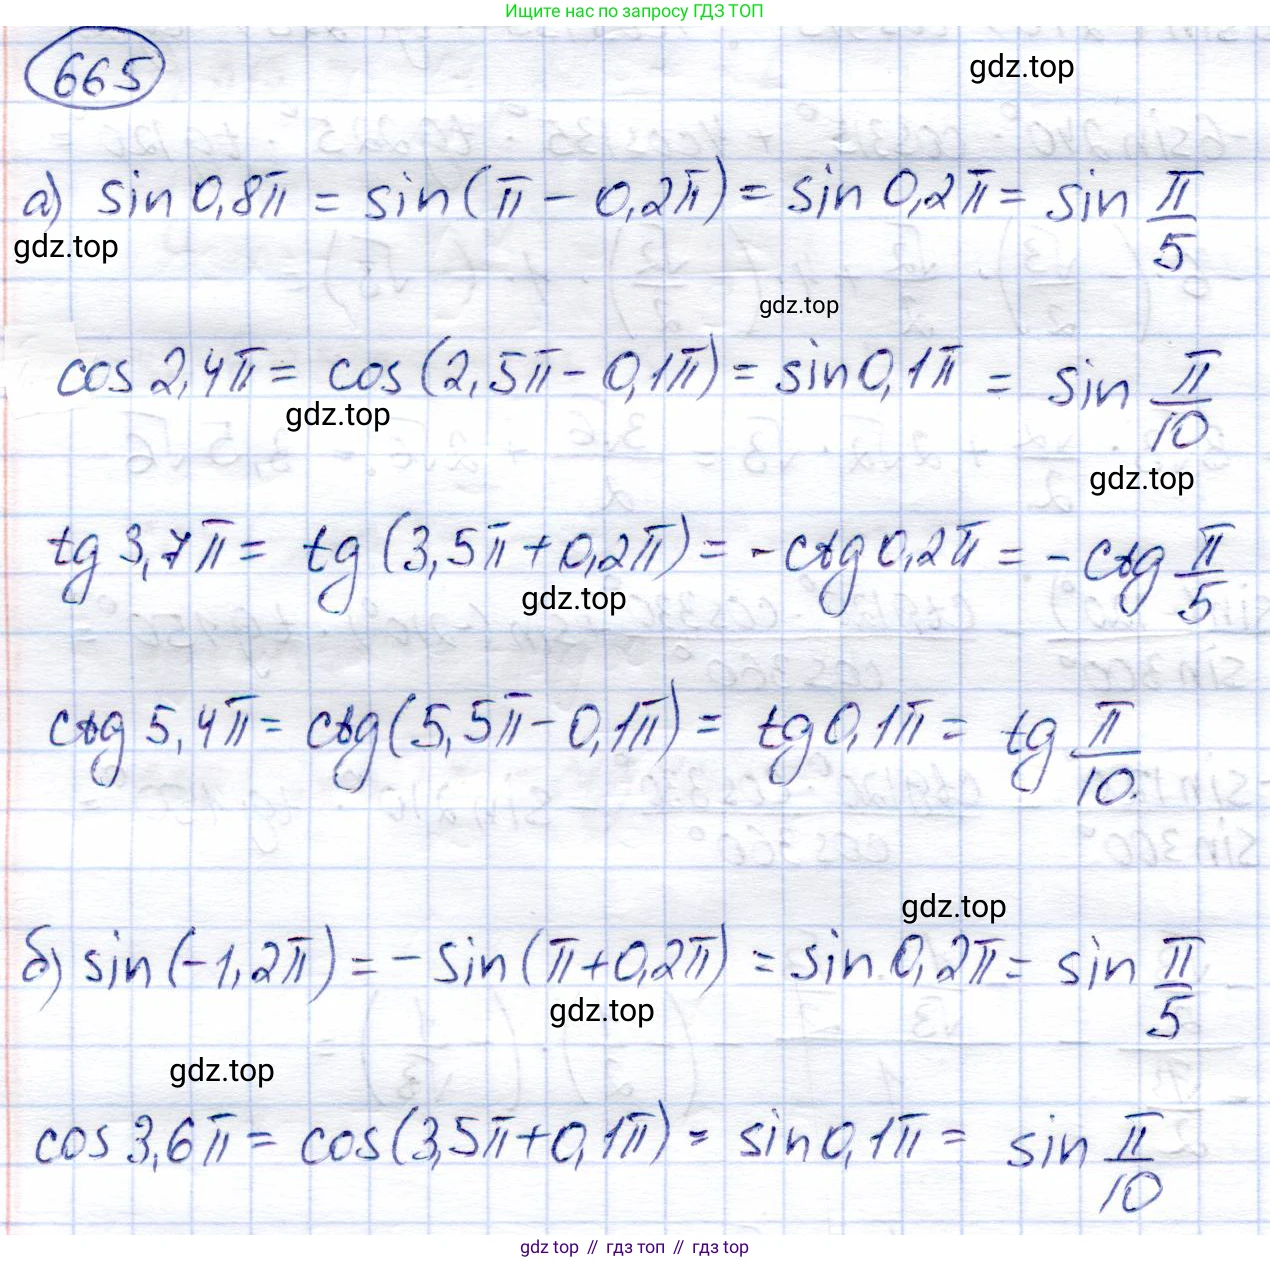 Ищите нас по запросу ГДЗ ТОП
665
gdz.top
а) sin 0,8π = sin(π - 0,2π) = sin 0,2π = sin π/5
gdz.top
gdz.top
cos 2,4π = cos(2,5π - 0,1π) = sin 0,1π = sin π/10
gdz.top
gdz.top
tg 3,7π = tg(3,5π + 0,2π) = -ctg 0,2π = -ctg π/5
gdz.top
ctg 5,4π = ctg(5,5π - 0,1π) = tg 0,1π = tg π/10
gdz.top
б) sin(-1,2π) = -sin(π + 0,2π) = sin 0,2π = sin π/5
gdz.top
gdz.top
cos 3,6π = cos(3,5π + 0,1π) = sin 0,1π = sin π/10
gdz top // гдз топ // гдз top